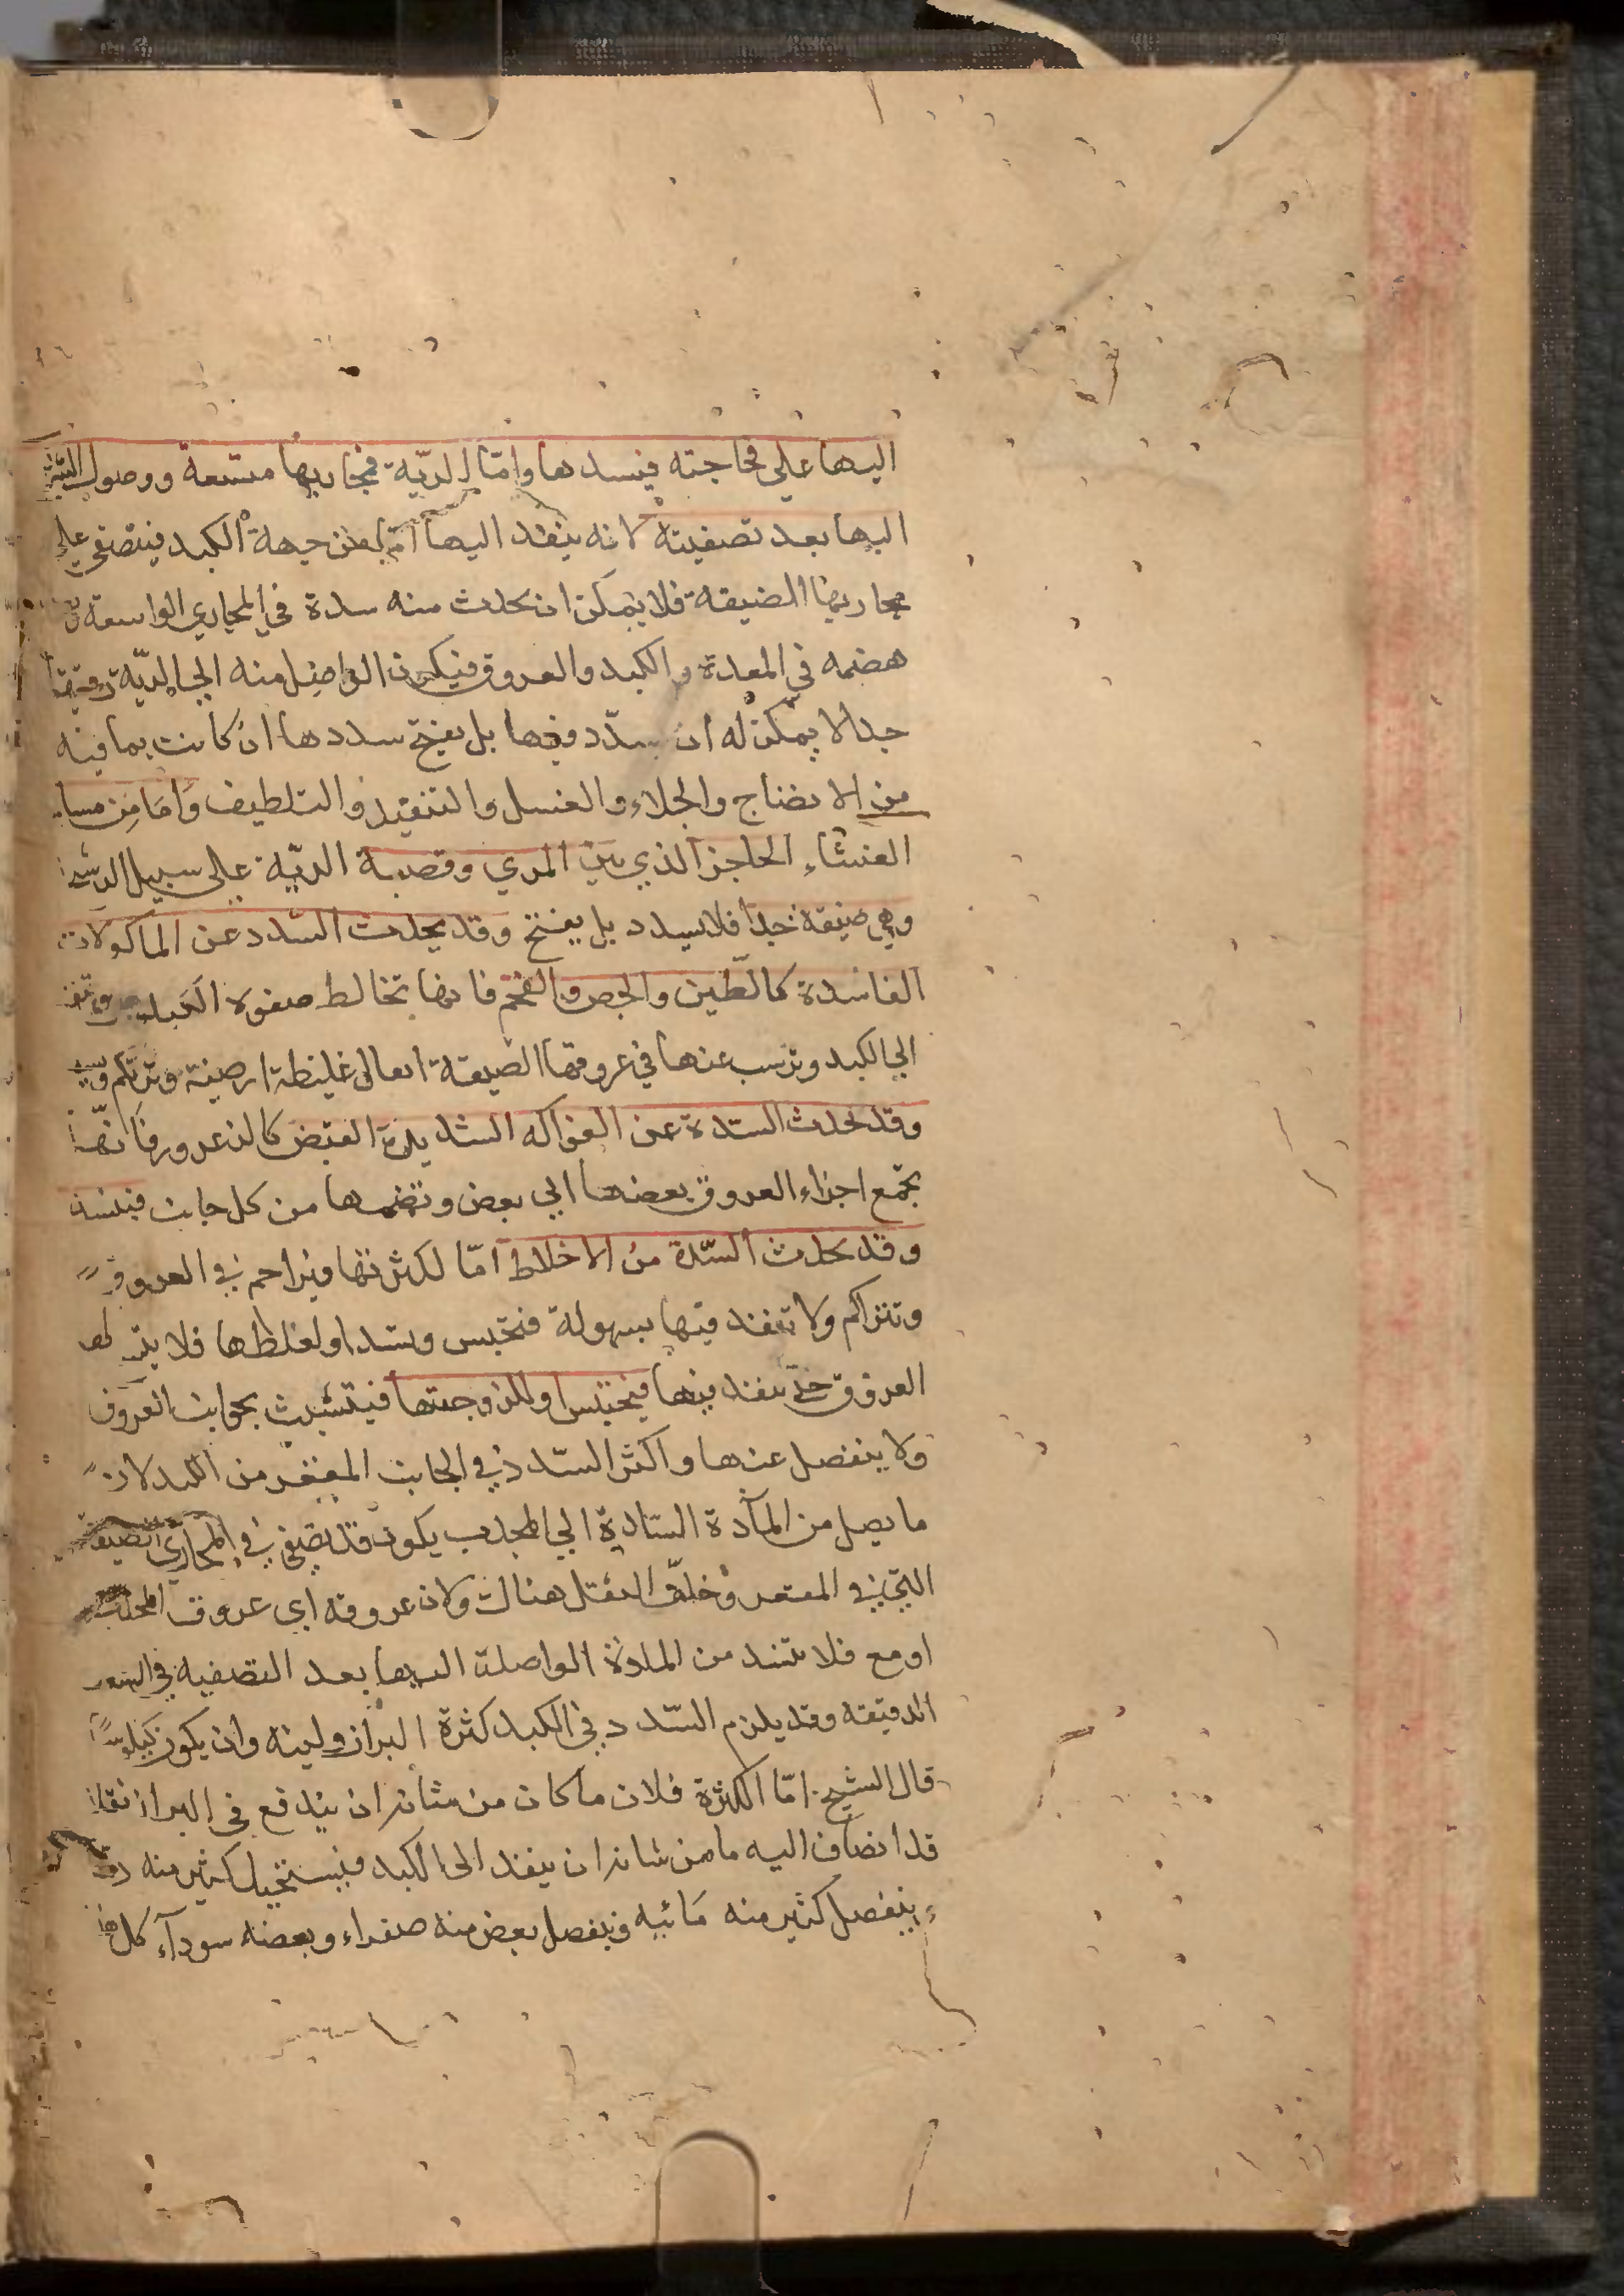 اليها على فجاجته فيسدها وامّا الريّة فمجاريها متسعة ووصول الشراب
اليها بعد تصفيته لانه ينفذ اليها امّا من جهة الكبد فيتصفى على
مجاريها الضيقة فلا يمكن ان يحدث منه سدة في المجاري الواسعة
هضمه في المعدة والكبد والعروق فيكون الواصل منه الى الريّة رقيقا
جدا لا يمكن له ان يسدّد فيها بل يفتح سددها ان كانت بما فيه
من الانضاج والجلاء والغسل والتنفيذ والتلطيف وامّا من مسام
الغشاء الحاجز الذي بين المري وقصبة الريّة على سبيل الرشح
وهي ضيقة جدا فلا يسدد بل يفتح وقد يحدث السّدد عن الماكولات
الفاسدة كالطّين والجص والفحم فانها تخالط صفوة الكيلوس وتنفذ
الى الكبد وترسب عنها في عروقها الضيقة اثفال غليظة ارضية وتتراكم
وقد يحدث السّدة عن الفواكه الشديدة القبض كالزعرور فانّها
تجمع اجزاء العروق بعضها الى بعض وتضمها من كل جانب فينسد
وقد يحدث السّدة من الاخلاط امّا لكثرتها فيزاحم في العروق
وتتراكم ولا تنفذ فيها بسهولة فتحتبس وتسد او لغلظها فلا
العروق حتى ينفذ فيها فيحتبس او للزوجتها فيتشبث بجوانب العروق
ولا ينفصل عنها واكثر السّدد في الجانب المقعر من الكبد لان
ما يصل من المادّة السّادة الى المحدب يكون قد تصفى في المجاري الضيقة
التي في المقعر وخلّف الثفل هناك ولان عروقه اي عروق المحدب
اوسع فلا تنسد من المادة الواصلة اليها بعد التصفية في الشعب
الدقيقة وقد يلزم السّدد في الكبد كثرة البراز ولينه وان يكون كيلوسيّا
قال الشيخ امّا الكثرة فلان ما كان من شانه ان يندفع في البراز ثفلا
قد انضاف اليه ما من شانه ان ينفذ الى الكبد فيستحيل كثير منه دما
وينفصل كثير منه مائيه وينفصل بعض منه صفراء وبعضه سودآء كل هذا